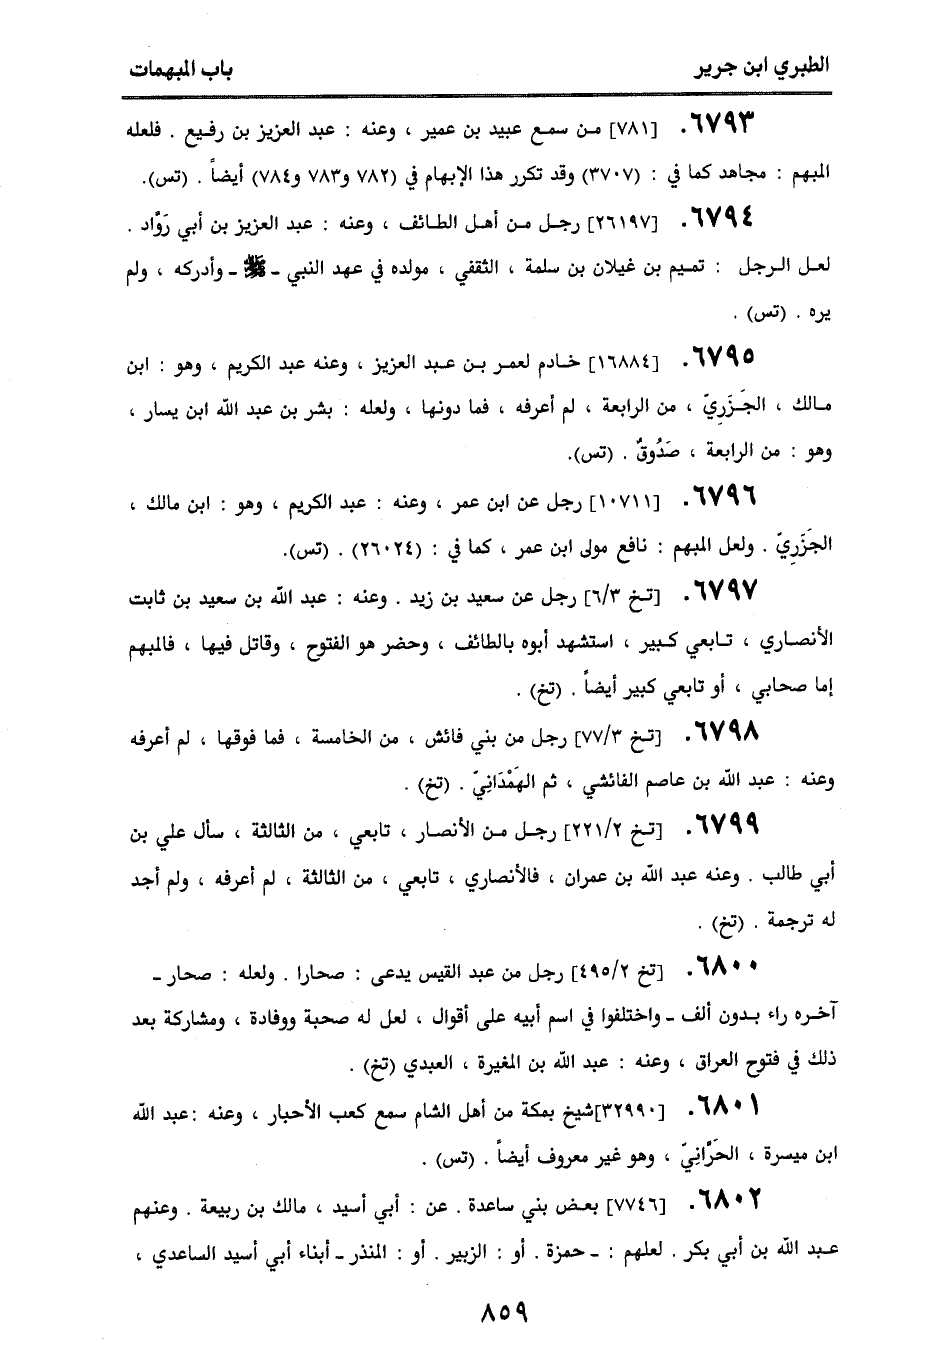 الطبري ابن جرير باب المبهمات
٦٧٩٣. [٧٨١] من سمع عبيد بن عمير ، وعنه : عبد العزيز بن رفيع . فلعله
المبهم : مجاهد كما في : (٣٧٠٧) وقد تكرر هذا الإبهام في (٧٨٢ و٧٨٣ و٧٨٤) أيضاً . (تس).
٦٧٩٤. [٢٦١٩٧] رجل من أهل الطائف ، وعنه : عبد العزيز بن أبي رَوَّاد .
لعل الرجل : تميم بن غيلان بن سلمة ، الثقفي ، مولده في عهد النبي ـ ﷺ ـ وأدركه ، ولم
يره . (تس) .
٦٧٩٥. [١٦٨٨٤] خادم لعمر بن عبد العزيز ، وعنه عبد الكريم ، وهو : ابن
مالك ، الجَزَرِيّ ، من الرابعة ، لم أعرفه ، فما دونها ، ولعله : بشر بن عبد الله ابن يسار ،
وهو : من الرابعة ، صَدُوقٌ . (تس).
٦٧٩٦. [١٠٧١١] رجل عن ابن عمر ، وعنه : عبد الكريم ، وهو : ابن مالك ،
الجَزَرِيّ . ولعل المبهم : نافع مولى ابن عمر ، كما في : (٢٦٠٢٤) . (تس).
٦٧٩٧. [تخ ٦/٣] رجل عن سعيد بن زيد . وعنه : عبد الله بن سعيد بن ثابت
الأنصاري ، تابعي كبير ، استشهد أبوه بالطائف ، وحضر هو الفتوح ، وقاتل فيها ، فالمبهم
إما صحابي ، أو تابعي كبير أيضاً . (تخ) .
٦٧٩٨. [تخ ٧٧/٣] رجل من بني فائش ، من الخامسة ، فما فوقها ، لم أعرفه
وعنه : عبد الله بن عاصم الفائشي ، ثم الهَمْدَانِيّ . (تخ) .
٦٧٩٩. [تخ ٢٢١/٢] رجل من الأنصار ، تابعي ، من الثالثة ، سأل علي بن
أبي طالب . وعنه عبد الله بن عمران ، فالأنصاري ، تابعي ، من الثالثة ، لم أعرفه ، ولم أجد
له ترجمة . (تخ) .
٦٨٠٠. [تخ ٤٩٥/٢] رجل من عبد القيس يدعى : صحارا . ولعله : صحار ـ
آخره راء بدون ألف ـ واختلفوا في اسم أبيه على أقوال ، لعل له صحبة ووفادة ، ومشاركة بعد
ذلك في فتوح العراق ، وعنه : عبد الله بن المغيرة ، العبدي (تخ) .
٦٨٠١. [٣٢٩٩٠]شيخ بمكة من أهل الشام سمع كعب الأحبار ، وعنه :عبد الله
ابن ميسرة ، الحَرَّانِيّ ، وهو غير معروف أيضاً . (تس) .
٦٨٠٢. [٧٧٤٦] بعض بني ساعدة . عن : أبي أسيد ، مالك بن ربيعة . وعنهم
عبد الله بن أبي بكر . لعلهم : ـ حمزة . أو : الزبير . أو : المنذر ـ أبناء أبي أسيد الساعدي ،
٨٥٩